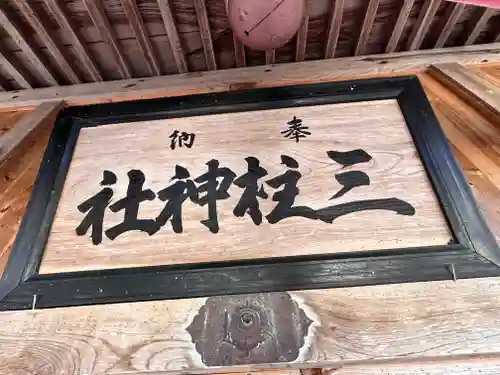 奉納
三柱神社